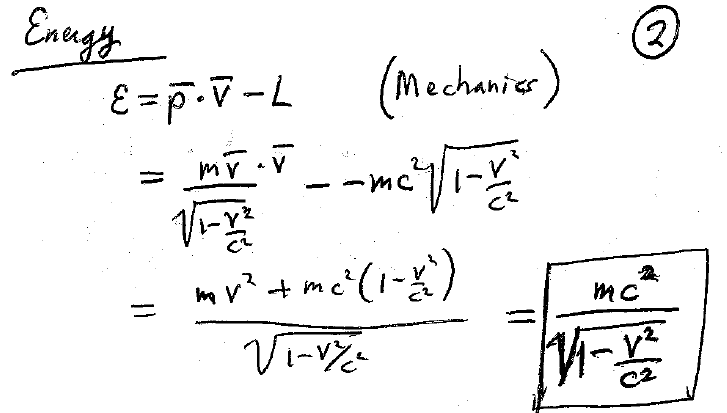 Energy ②
ℰ = p̄ · v̄ − L (Mechanics)
= mv̄ · v̄ / √(1 − v²/c²) − − mc² √(1 − v²/c²)
= (mv² + mc²(1 − v²/c²)) / √(1 − v²/c²) = mc² / √(1 − v²/c²)